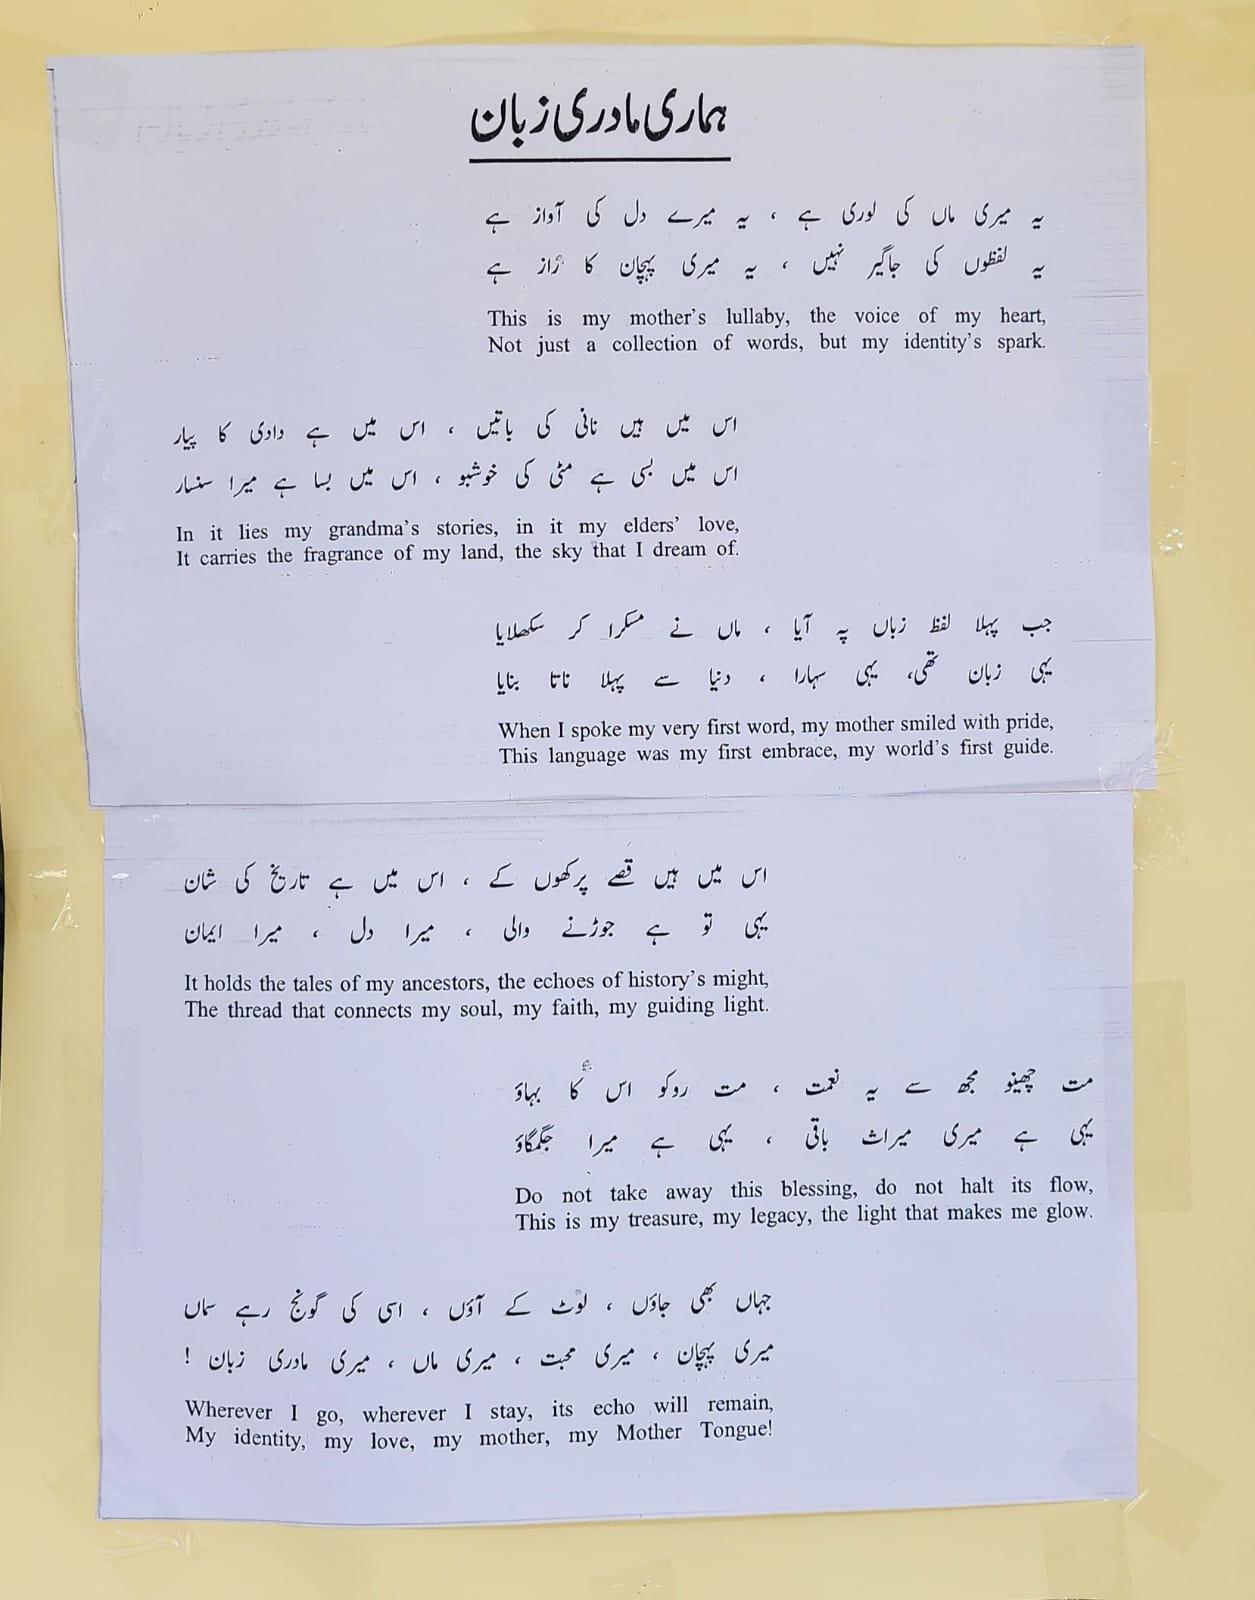 ہماری مادری زبان
یہ میری ماں کی لوری ہے ، یہ میرے دل کی آواز ہے
یہ لفظوں کی جاگیر نہیں ، یہ میری پہچان کا راز ہے
This is my mother's lullaby, the voice of my heart,
Not just a collection of words, but my identity's spark.
اس میں ہیں نانی کی باتیں ، اس میں ہے دادی کا پیار
اس میں بسی ہے مٹی کی خوشبو ، اس میں بسا ہے میرا سنسار
In it lies my grandma's stories, in it my elders' love,
It carries the fragrance of my land, the sky that I dream of.
جب پہلا لفظ زباں پہ آیا ، ماں نے مسکرا کر سکھلایا
یہی زبان تھی، یہی سہارا ، دنیا سے پہلا ناتا بنایا
When I spoke my very first word, my mother smiled with pride,
This language was my first embrace, my world's first guide.
اس میں ہیں قصے پرکھوں کے ، اس میں ہے تاریخ کی شان
یہی تو ہے جوڑنے والی ، میرا دل ، میرا ایمان
It holds the tales of my ancestors, the echoes of history's might,
The thread that connects my soul, my faith, my guiding light.
مت چھینو مجھ سے یہ نعمت ، مت روکو اس کا بہاؤ
یہی ہے میری میراث باقی ، یہی ہے میرا جگمگاؤ
Do not take away this blessing, do not halt its flow,
This is my treasure, my legacy, the light that makes me glow.
جہاں بھی جاؤں ، لوٹ کے آؤں ، اسی کی گونج رہے سماں
میری پہچان ، میری محبت ، میری ماں ، میری مادری زبان !
Wherever I go, wherever I stay, its echo will remain,
My identity, my love, my mother, my Mother Tongue!